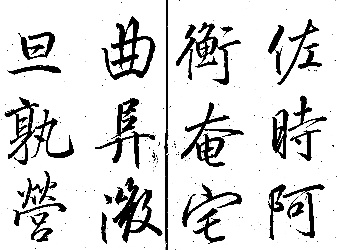 佐時阿
衡奄宅
曲阜微
旦孰營